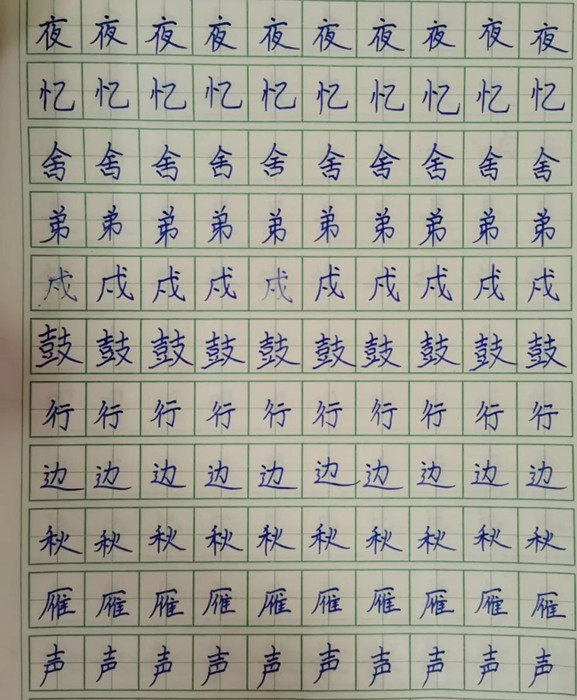 夜夜夜夜夜夜夜夜夜夜
忆忆忆忆忆忆忆忆忆忆
舍舍舍舍舍舍舍舍舍舍
弟弟弟弟弟弟弟弟弟弟
戍戍戍戍戍戍戍戍戍戍
鼓鼓鼓鼓鼓鼓鼓鼓鼓鼓
行行行行行行行行行行
边边边边边边边边边边
秋秋秋秋秋秋秋秋秋秋
雁雁雁雁雁雁雁雁雁雁
声声声声声声声声声声